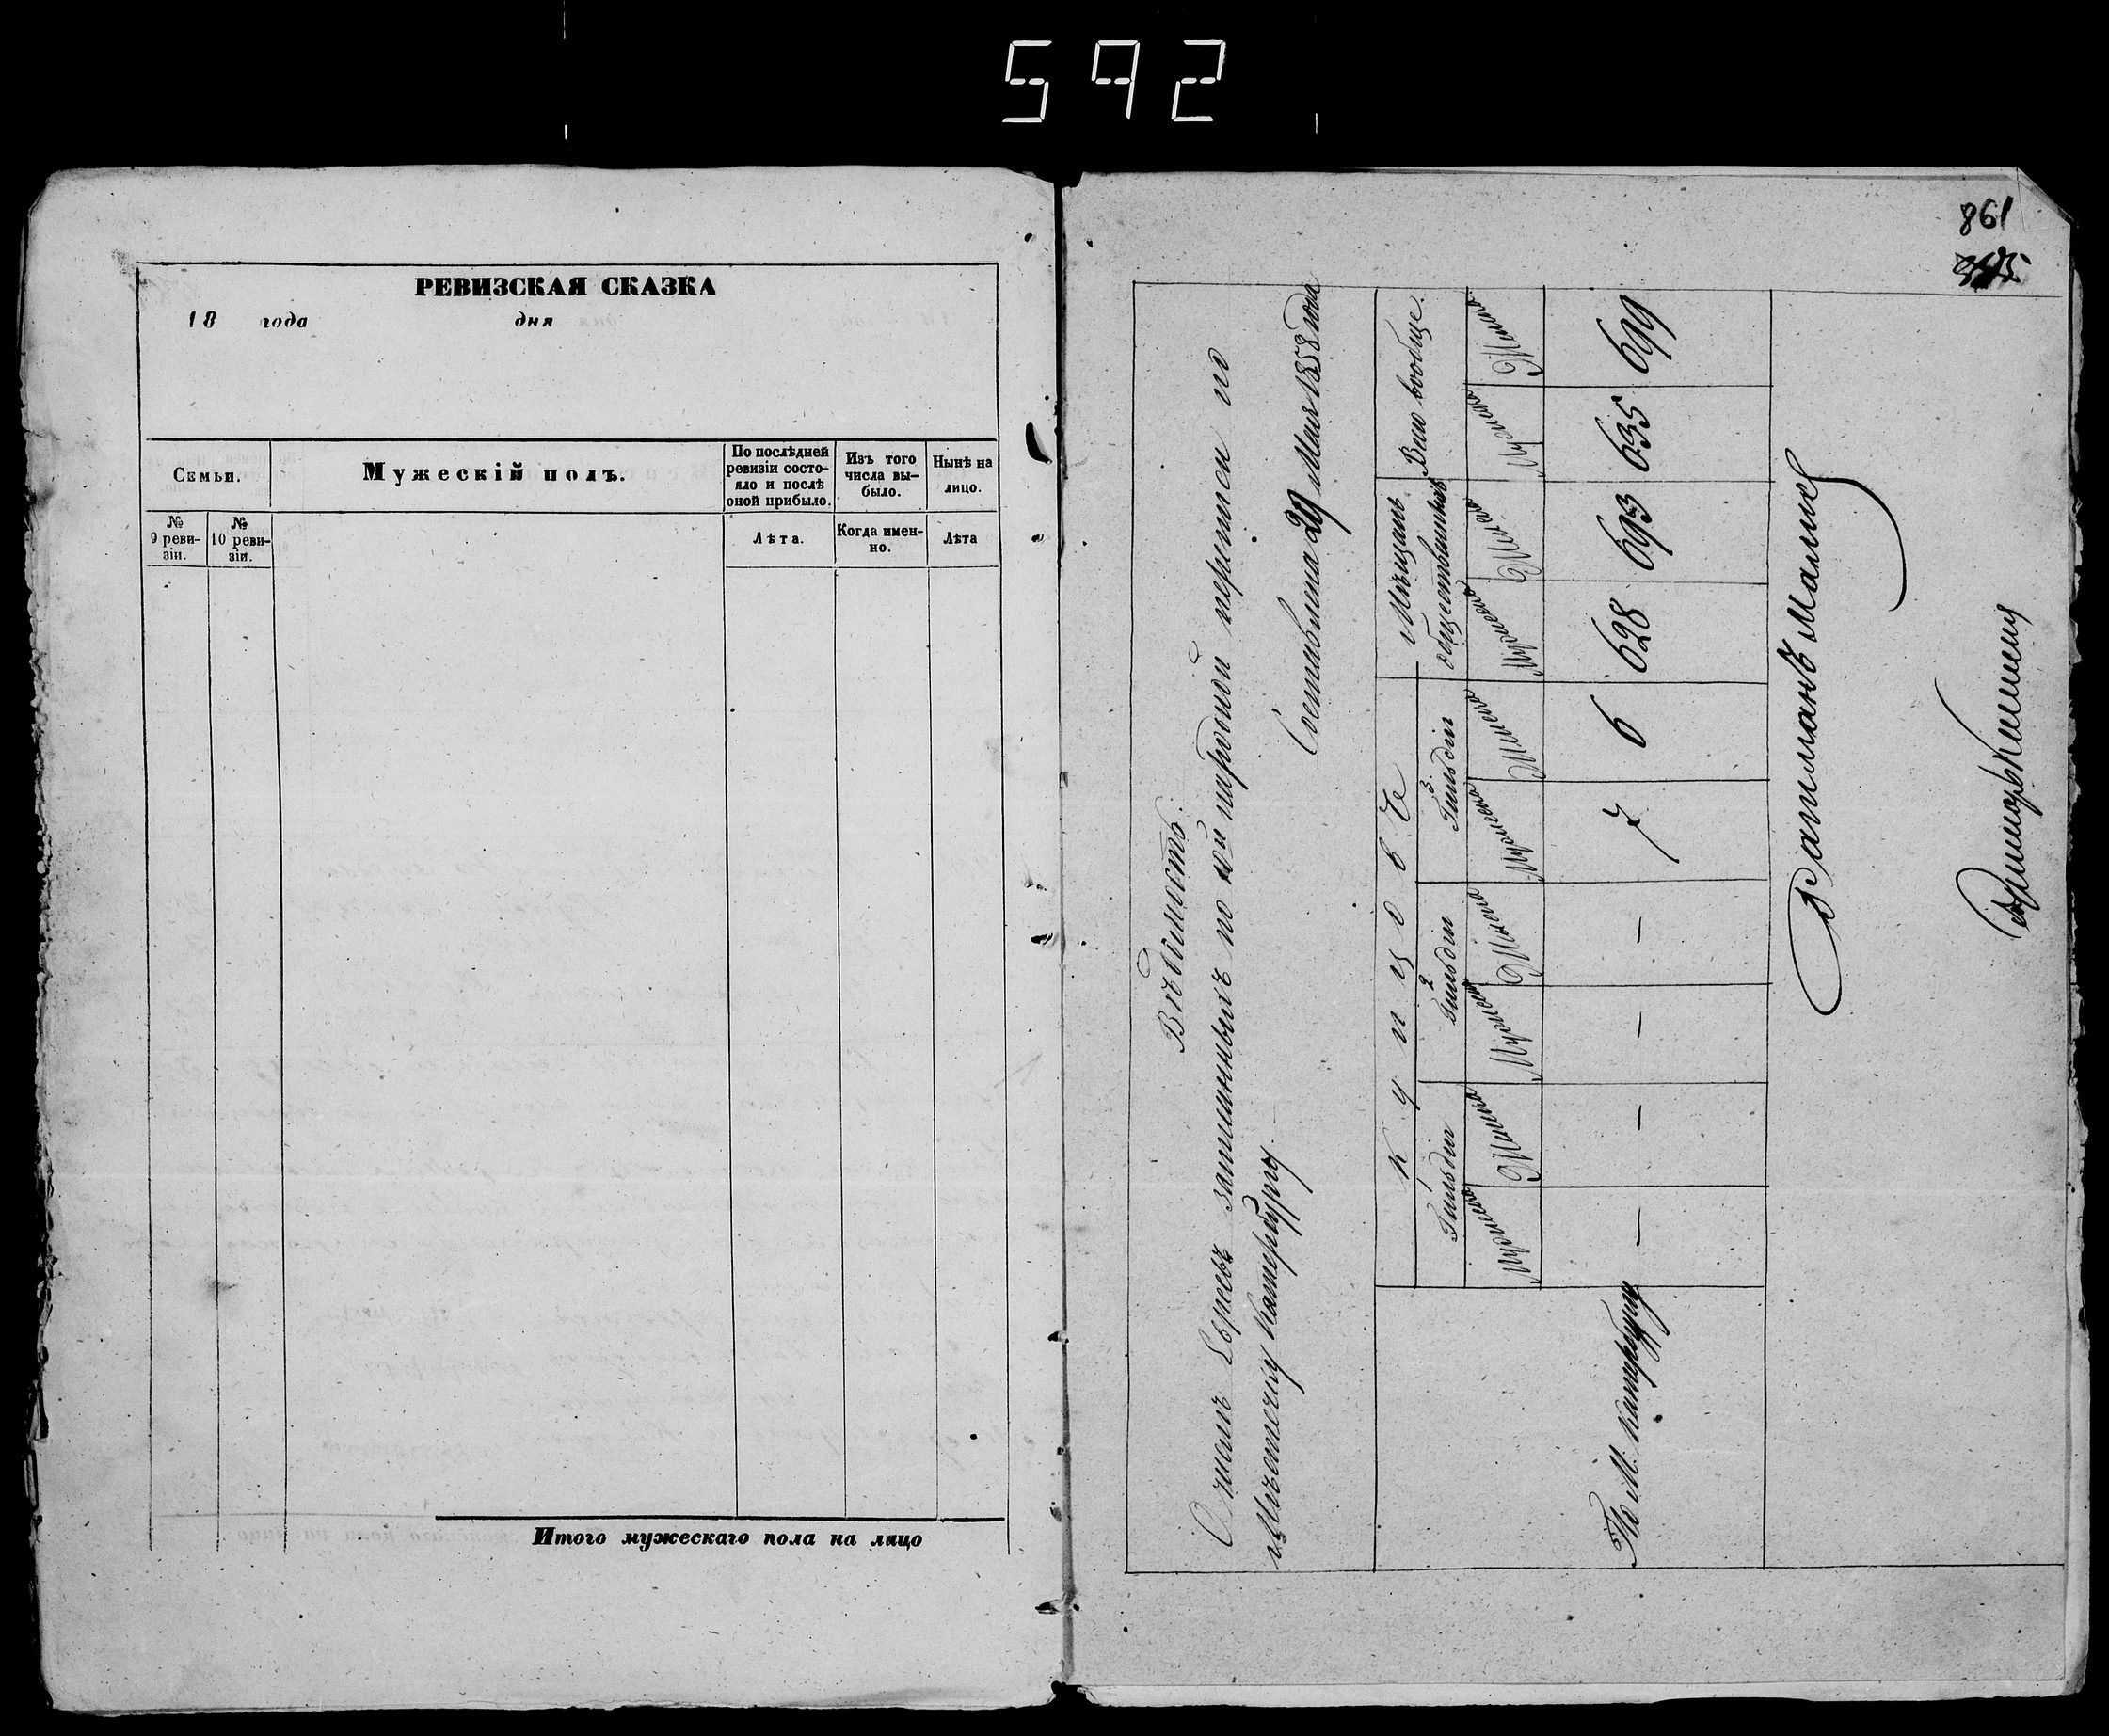 592
РЕВИЗСКАЯ СКАЗКА
18 года дня
Семьи.
Мужескій полъ.
По послѣдней ревизіи состо-
яло и послѣ
оной прибыло.
Изъ того
числа вы-
было.
Нынѣ на
лицо.
№
9 реви-
зіи.
№
10 реви-
зіи.
Лѣта.
Когда имен-
но.
Лѣта
Итого мужескаго пола на лицо
861
Вѣдомость.
О числѣ Евреевъ записанныхъ по 10й народной переписи по
Мѣстечку Катербургу.
Составлена 29 Мая 1858 года
Купцовъ
Мѣщанъ
Всего вообще.
1 Гильдіи
2 Гильдіи
3 Гильдіи
Мужеска Женска Мужеска Женска Мужеска Женска Мужеска Женска Мужеска Женска
М. Катербургу — — — — 7 6 628 693 635 699